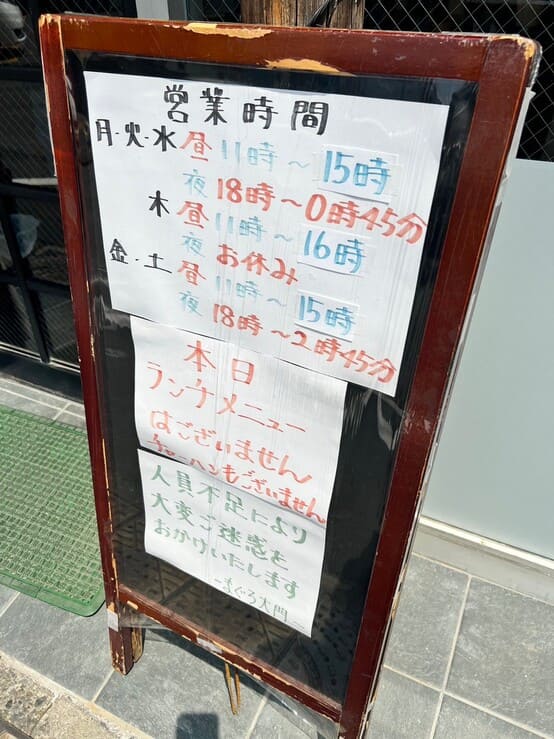 営業時間
月・火・水 昼 11時～15時
夜 18時～0時45分
木 昼 11時～16時
夜 お休み
金・土 昼 11時～15時
夜 18時～2時45分
本日
ランチメニュー
はございません
チャーハンもございません
人員不足により
大変ご迷惑を
おかけいたします
～まぐろ大門～